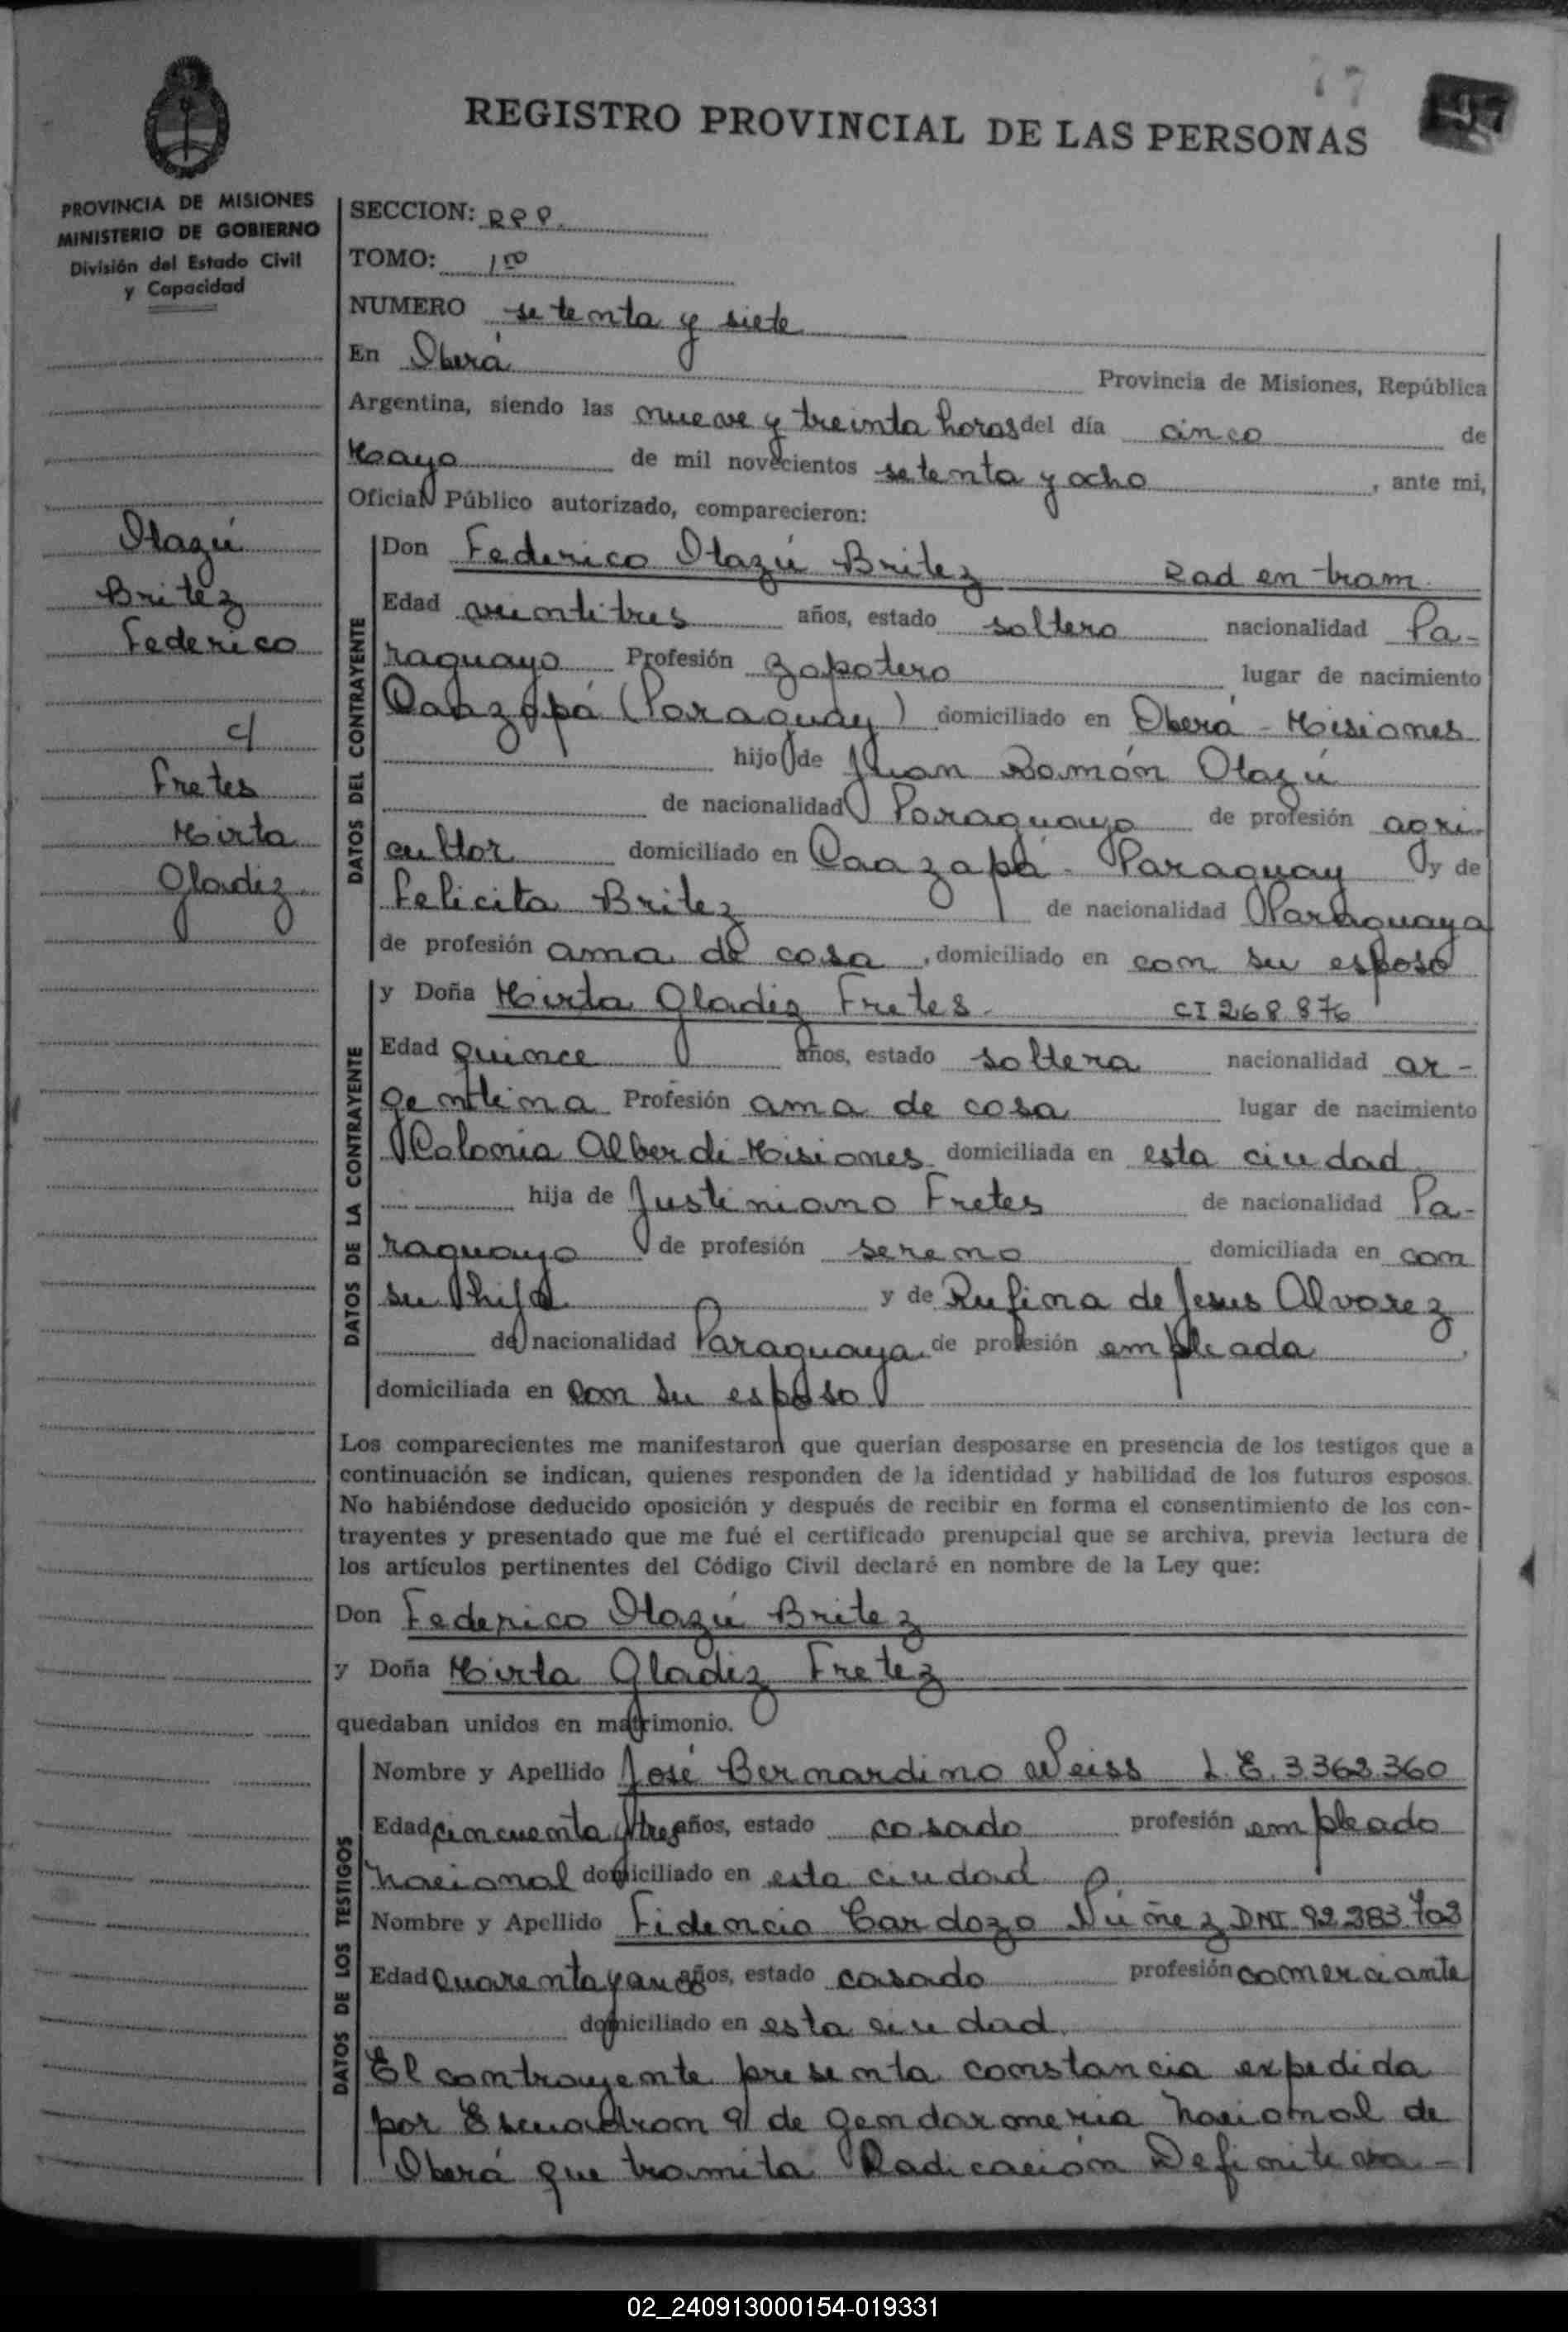 REGISTRO PROVINCIAL DE LAS PERSONAS
PROVINCIA DE MISIONES
MINISTERIO DE GOBIERNO
División del Estado Civil
y Capacidad
Olazú
Britez
Federico
c/
Fretes
Mirta
Gladiz
SECCION: RPP.
TOMO: 1ro
NUMERO setenta y siete
En Oberá Provincia de Misiones, República
Argentina, siendo las nueve y treinta horas del día cinco de
Mayo de mil novecientos setenta y ocho, ante mi,
Oficial Público autorizado, comparecieron:
DATOS DEL CONTRAYENTE
Don Federico Olazú Britez Rad en tram.
Edad veintitres años, estado soltero nacionalidad Pa-
raguayo Profesión zapatero lugar de nacimiento
Caazapá (Paraguay) domiciliado en Oberá - Misiones
hijo de Juan Ramón Olazú
de nacionalidad Paraguayo de profesión agri-
cultor domiciliado en Caazapá - Paraguay y de
Felicita Britez de nacionalidad Paraguaya
de profesión ama de casa, domiciliado en con su esposo
DATOS DE LA CONTRAYENTE
y Doña Mirta Gladiz Fretes. CI 268 876
Edad quince años, estado soltera nacionalidad ar-
gentina Profesión ama de casa lugar de nacimiento
Colonia Alberdi-Misiones domiciliada en esta ciudad
hija de Justiniano Fretes de nacionalidad Pa-
raguayo de profesión sereno domiciliada en con
su hija y de Rufina de Jesus Alvarez
de nacionalidad Paraguaya de profesión empleada,
domiciliada en con su esposo
Los comparecientes me manifestaron que querían desposarse en presencia de los testigos que a
continuación se indican, quienes responden de la identidad y habilidad de los futuros esposos.
No habiéndose deducido oposición y después de recibir en forma el consentimiento de los con-
trayentes y presentado que me fué el certificado prenupcial que se archiva, previa lectura de
los artículos pertinentes del Código Civil declaré en nombre de la Ley que:
Don Federico Olazú Britez
y Doña Mirta Gladiz Fretez
quedaban unidos en matrimonio.
DATOS DE LOS TESTIGOS
Nombre y Apellido José Bernardino Weiss L.E. 3362360
Edad cincuenta y tres años, estado casado profesión empleado
Nacional domiciliado en esta ciudad
Nombre y Apellido Fidencio Cardozo Núñez DNI 92.383.703
Edad cuarenta y años, estado casado profesión comerciante
domiciliado en esta ciudad.
El contrayente presenta constancia expedida
por Escuadron 9 de Gendarmeria Nacional de
Oberá que tramita Radicación Definitiva-
02_240913000154-019331